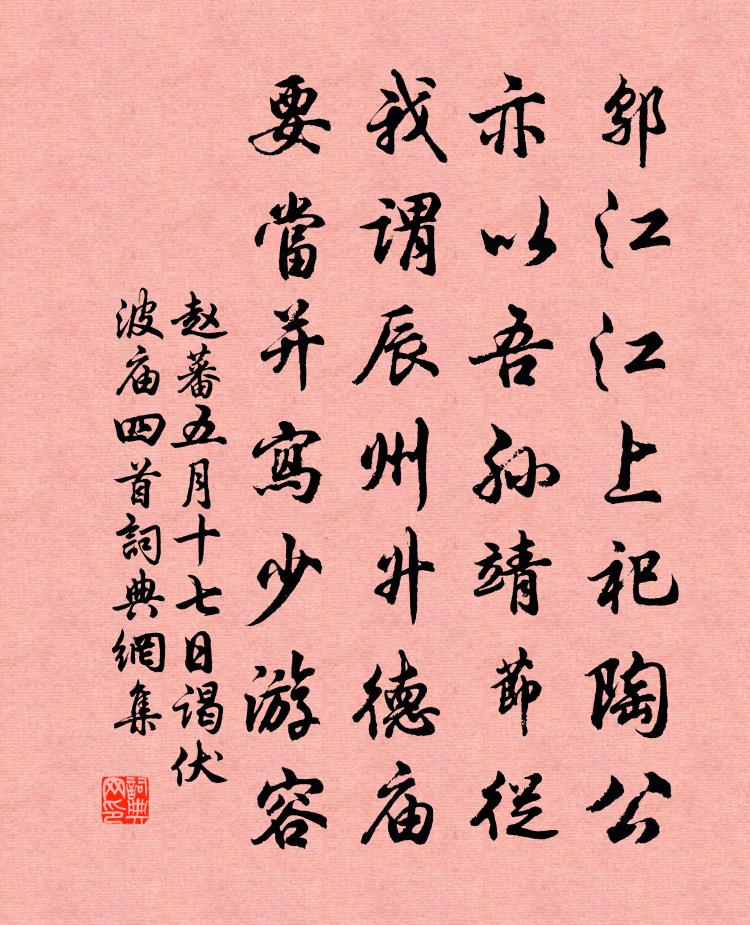 鄔江江上祀陶公
亦以吾孙靖節從
我謂辰州升德庙
要當并寫少游容
赵蕃五月十七日谒伏
波庙四首詞典網集
詞典网印